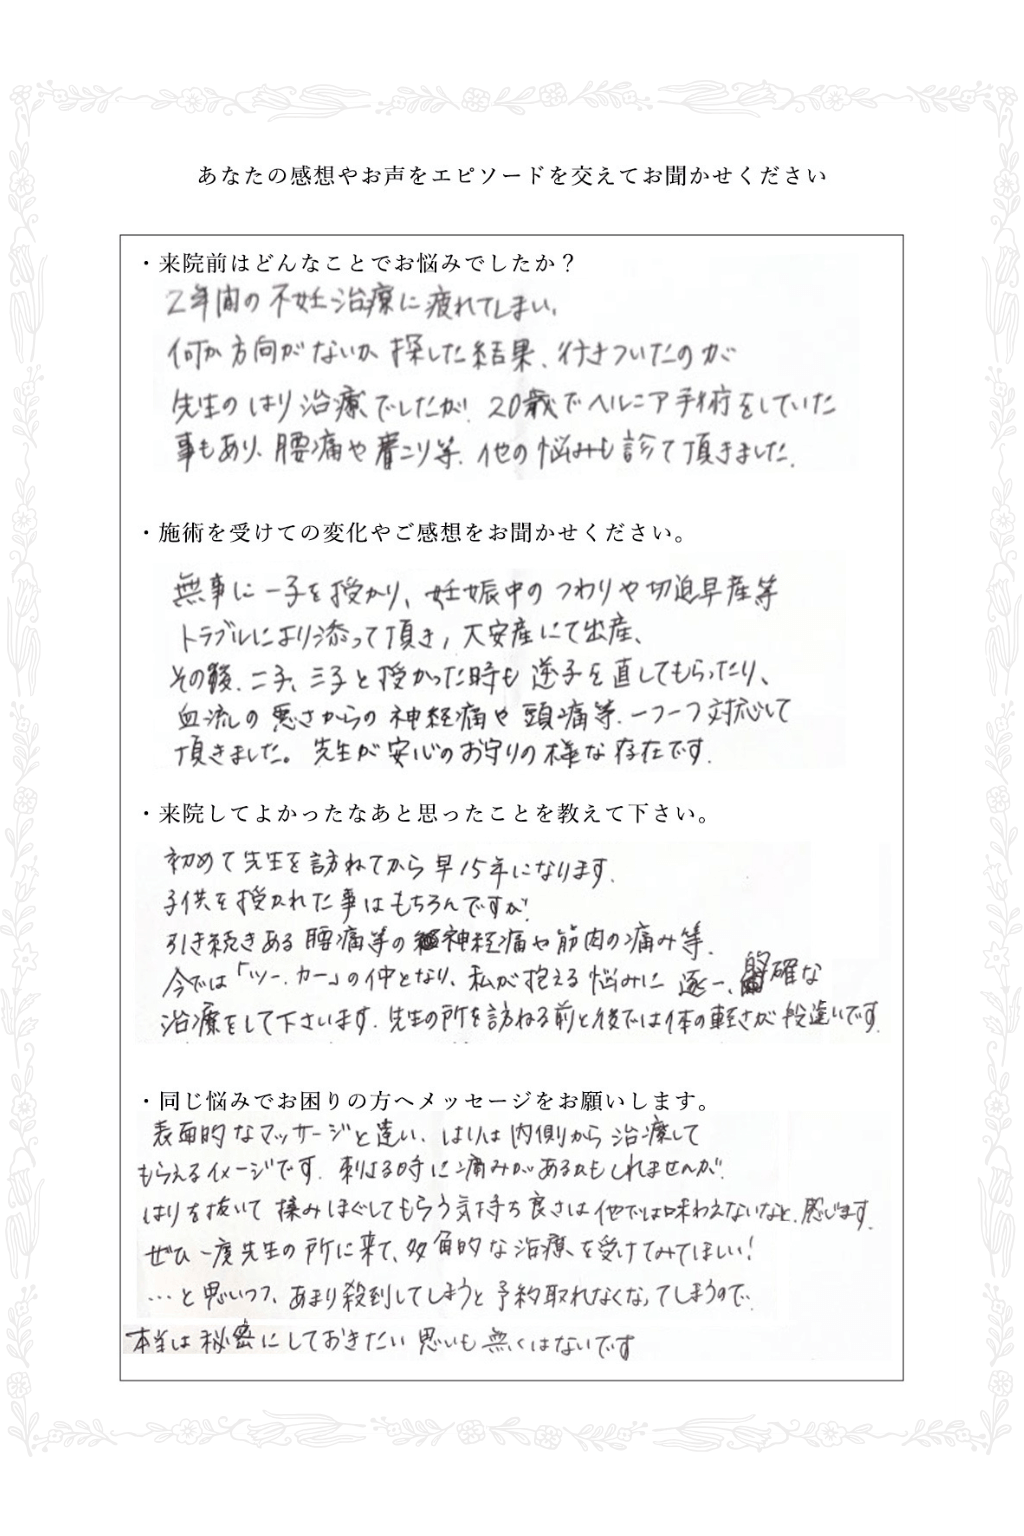 あなたの感想やお声をエピソードを交えてお聞かせください
・来院前はどんなことでお悩みでしたか？
2年間の不妊治療に疲れてしまい、
何か方向がないか探した結果、行きついたのが
先生のはり治療でしたが、20歳でヘルニア手術をしていた
事もあり、腰痛や肩こり等、他の悩みも診て頂きました。
・施術を受けての変化やご感想をお聞かせください。
無事に一子を授かり、妊娠中のつわりや切迫早産等
トラブルにより添って頂き、大安産にて出産、
その後、二子、三子と授かった時も逆子を直してもらったり、
血流の悪さからの神経痛や頭痛等、一つ一つ対応して
頂きました。先生が安心のお守りの様な存在です。
・来院してよかったなあと思ったことを教えて下さい。
初めて先生を訪ねてから早15年になります。
子供を授かれた事はもちろんですが、
引き続きある腰痛等の神経痛や筋肉の痛み等、
今では「ツー、カー」の仲となり、私が抱える悩みに逐一、的確な
治療をして下さいます。先生の所を訪ねる前と後では体の軽さが段違いです。
・同じ悩みでお困りの方へメッセージをお願いします。
表面的なマッサージと違い、はりは内側から治療して
もらえるイメージです。刺さる時に痛みがあるかもしれませんが、
はりを抜いて揉みほぐしてもらう気持ち良さは他では味わえないなと、感じます。
ぜひ一度先生の所に来て、多角的な治療を受けてみてほしい！
…と思いつつ、あまり殺到してしまうと予約取れなくなってしまうので、
本当は秘密にしておきたい思いも無くはないです